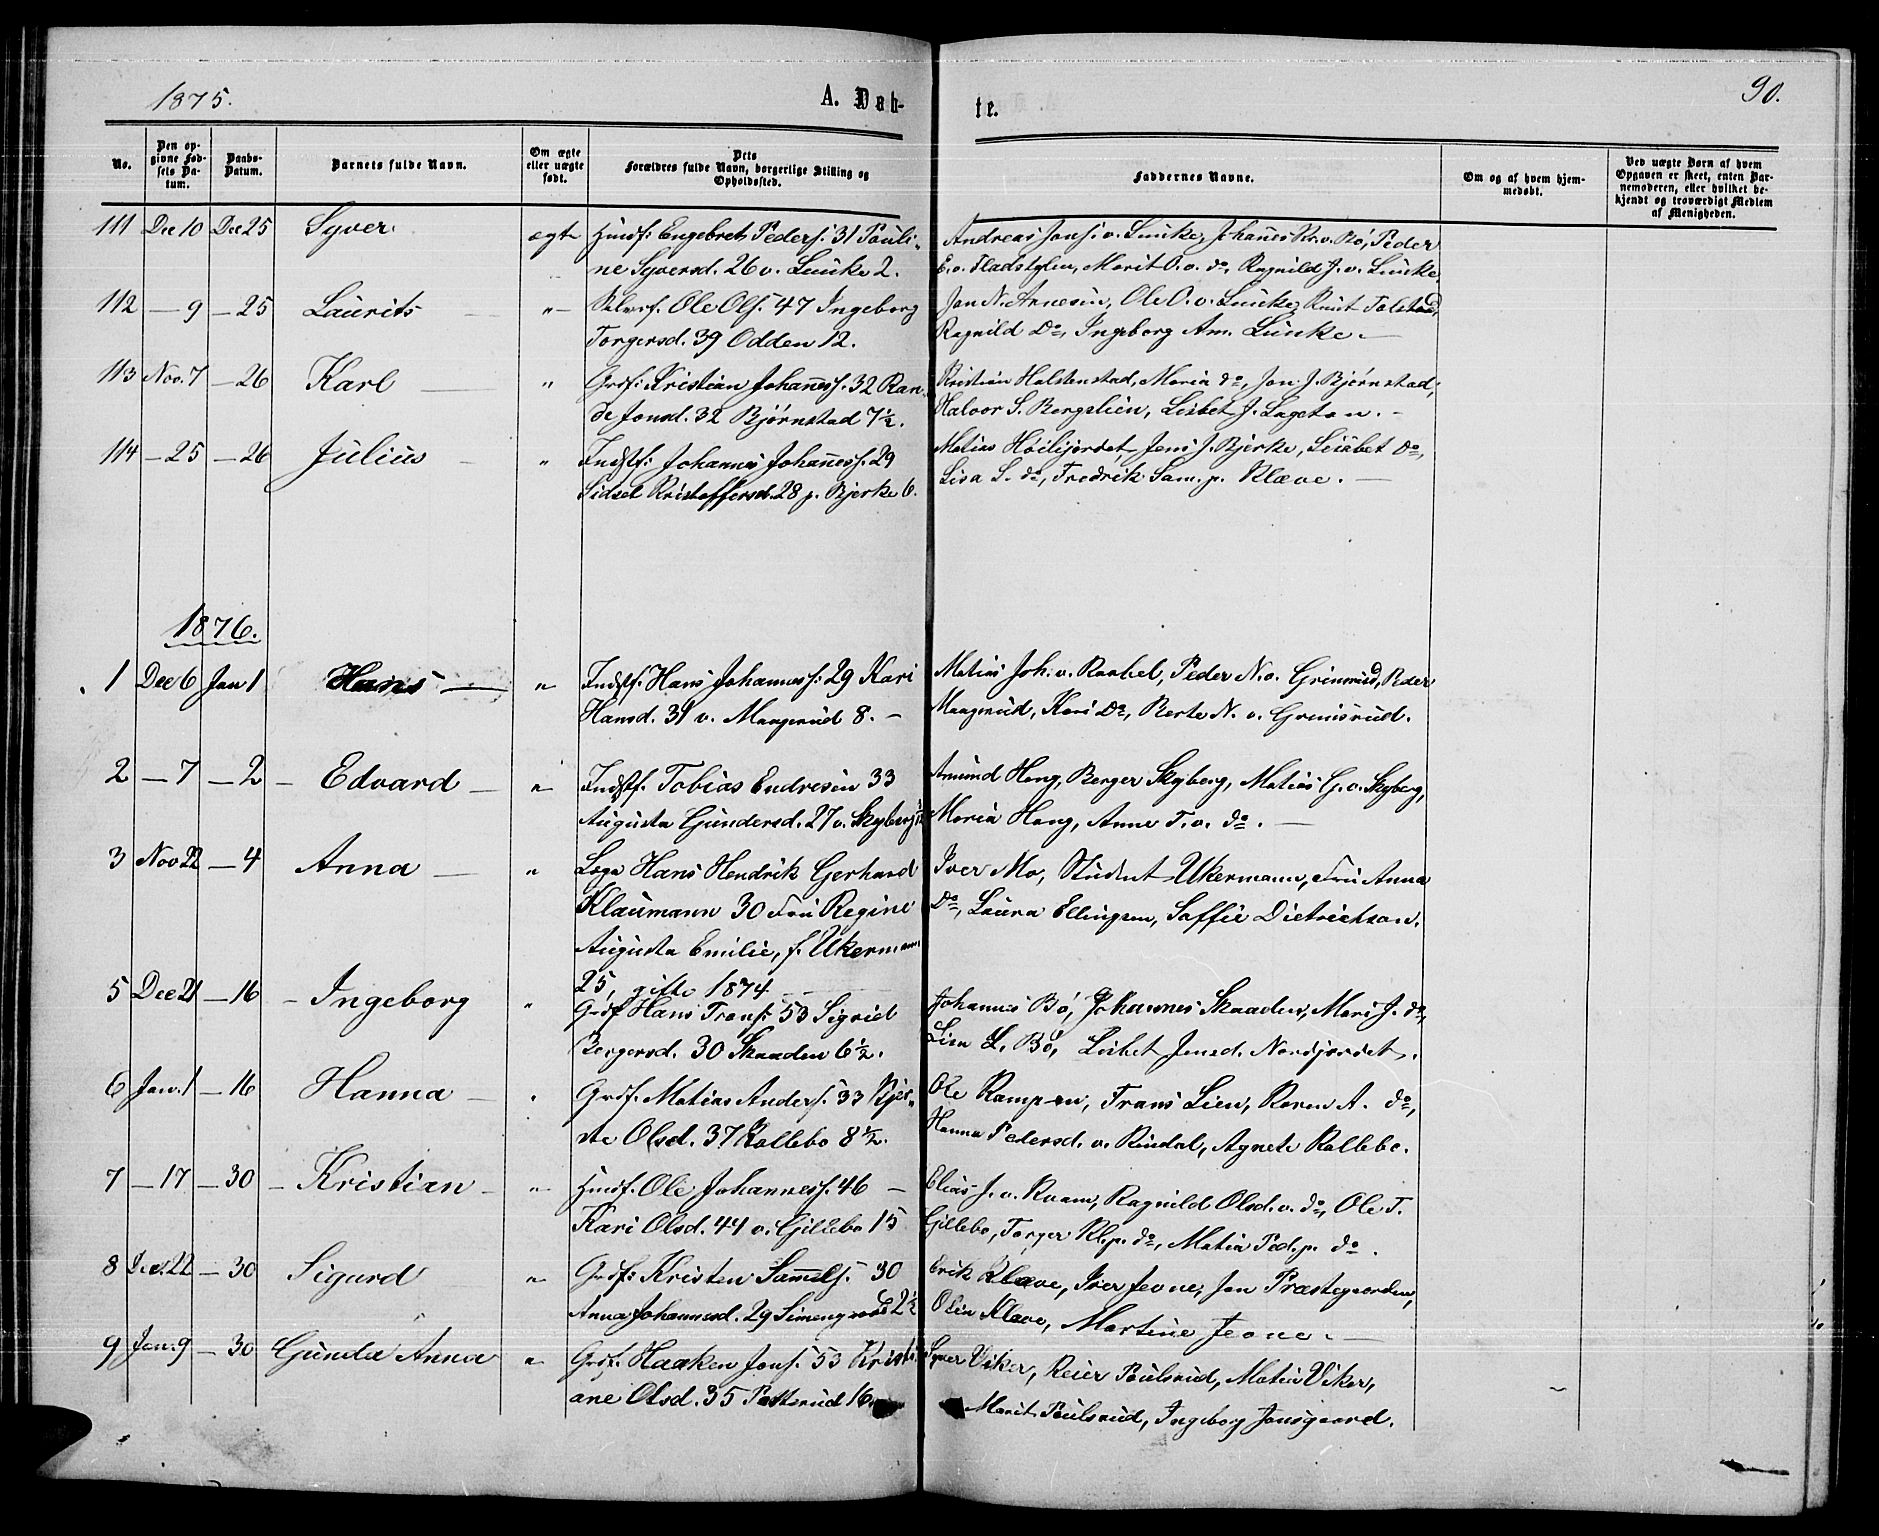 1875.
A. Døb-
te.
90.
No.
Den op-
givne Fød-
sels Da-
tum.
Daabs-
Datum.
Barnets fulde Navn.
Om ægte
eller uægte
født.
Dets
Forældres fulde Navn, borgerlige Stilling og
Opholdssted.
Faddernes Navne.
Om og af hvem hjem-
medøbt.
Ved uægte Børn af hvem
Opgaven er skeet, enten Bar-
nemoderen, eller hvilket be-
kjendt og troværdigt Medlem
af Menigheden.
111 Dec 10 Dec 25 Syver ægte Husf: Engebret Peders. 31 Pauli-
ne Syversd. 26 v. Lunke 2.
Andreas Jons. v. Lunke, Johanes Kr. v. Bø, Peder
E. v. Fladstylen, Marit O. v. do, Ragnild J. v. Lunke
112 — 9 — 25 Laurits " Ole Ols. 47 Ingeborg
Torgersd. 39 Odden 12.
Jon N. Arnesen, Ole O. v. Lunke, Knut Tolstad,
Ragnild Do, Ingeborg Am. Lunke. —
113 Nov. 7 — 26 Karl " Grdf: Kristian Johaness. 32 Ran-
de Jonsd. 32 Bjørnstad 7½.
Kristian Halstenstad, Maria do, Jon J. Bjørnstad,
Halvor S. Bergslien, Lisbet J. Lageton. -
114 — 25 — 26 Julius " Indstf: Johannes Johaness. 29
Sidsel Kristoffersd. 28 p. Bjerke 6.
Matias Høilijordet, Jens J. Bjerke, Lisabet Do,
Lisa L. do, Fredrik Sam. p. Kleve. —
1876.
1 Dec 6 Jan 1 Hans — " Indstf. Hans Johanness: 29 Kari
Hansd. 31 v. Maagerud 8. -
Matias Joh. v. Raabel, Peder N. v. Grimsrud, Peder
Maagerud, Kari Do, Berte N. v. Grimsrud.
2 — 7 — 2 - Edvard — " Indstf. Tobias Endresen 33
Augusta Gundersd. 27 v. Skyberg 12
Amund Haug, Berger Skyberg, Matias G. v. Skyberg,
Maria Haug, Anne T. v. do. —
3 Nov 22 — 4 Anna — " Læge Hans Hendrik Gerhard
Klaumann 30 Fru Regine
Augusta Emilie, f. Ukermann
25, gifte 1874
Iver Mo, Student Ukermann, Fru Anna
Do, Laura Ellingsen, Soffie Dietrichson.
5 Dec 21 — 16 - Ingeborg " Grdf Hans Frans: 53 Sigrid
Bergersd. 30 Skaaden 6½.
Johannes Bø, Johannes Skaaden, Mari J. do,
Lisa L. Bø, Lisbet Jensd. Nordjordet.
6 Jan. 1 — 16 Hanna — " Grdf. Matias Anders. 33 Kjer-
ste Olsd. 37 Kallebo 8½.
Ole Rampen, Frans Lien, Karen A. do,
Hanna Pedersd. v. Rindal, Agnete Kallebo.
7 — 17 — 30 - Kristian - " Husf. Ole Johanness. 46 —
Kari Olsd. 44 v. Gillebo 15
Elias J. v. Kvam, Ragnild Olsd. v. do, Ole T.
Gillebo, Torger Kl. p. do, Matia Ped. p. do.
8 Dec. 22 — 30 Sigurd " Grdf: Kristen Samuels. 30
Anna Johannesd. 29 Simengaard 2½
Erik Kleve, Iver Jevne, Jon Præstegaarden,
Olia Kleve, Martine Jevne. —
9 Jan. 9 — 30 Gunda Anna " Grdf. Haaken Jons. 53 Kristi-
ane Olsd. 35 Pottsrud 16.
Syver Viker, Reier Poulsrud, Matia Viker,
Marit Poulsrud, Ingeborg Jonsgaard.